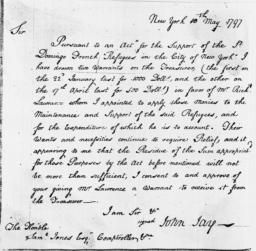 New York 10th May 1797
Sir
Pursuant to an Act "for the Support of the St
Domingo French Refugees in the City of New York"
I have drawn two Warrants on the Treasurer (the first on
the 22d January last for 1000 Doll.s, and the other on
the 17th April last for 500 Doll.s) in favor of Mr Rich.d
Lawrence whom I appointed to apply those Monies to the
Maintenance and Support of the said Refugees, and
for the Expenditure of which he is to account. Their
Wants and necessities continue to require Relief, and it
appearing to me that the Residue of the Sum appropriated
for those Purposes by the Act before mentioned will not
be more than sufficient, I consent to and approve of
your giving Mr Lawrence a Warrant to receive it from
the Treasurer—
I am Sir &c
signed John Jay—
The Honble
Saml Jones Esqr Comptroller &c—